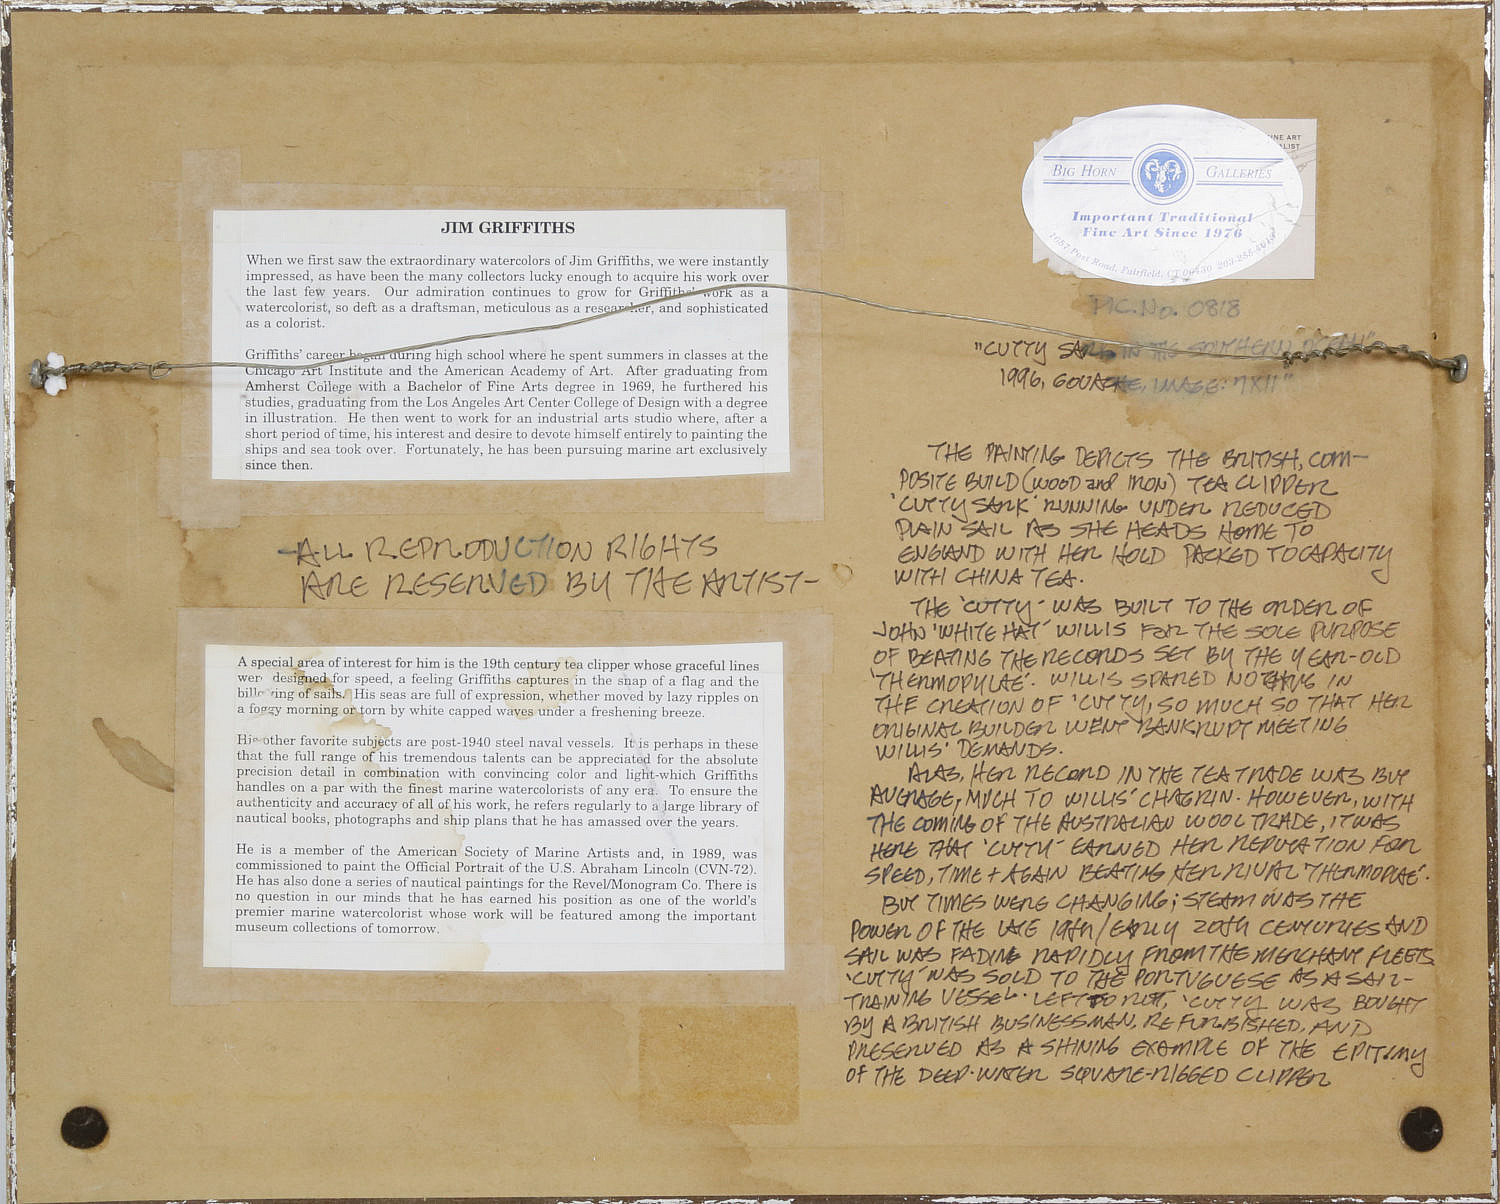 JIM GRIFFITHS
When we first saw the extraordinary watercolors of Jim Griffiths, we were instantly
impressed, as have been the many collectors lucky enough to acquire his work over
the last few years. Our admiration continues to grow for Griffiths' work as a
watercolorist, so deft as a draftsman, meticulous as a researcher, and sophisticated
as a colorist.
Griffiths' career began during high school where he spent summers in classes at the
Chicago Art Institute and the American Academy of Art. After graduating from
Amherst College with a Bachelor of Fine Arts degree in 1969, he furthered his
studies, graduating from the Los Angeles Art Center College of Design with a degree
in illustration. He then went to work for an industrial arts studio where, after a
short period of time, his interest and desire to devote himself entirely to painting the
ships and sea took over. Fortunately, he has been pursuing marine art exclusively
since then.
-ALL REPRODUCTION RIGHTS
ARE RESERVED BY THE ARTIST-
A special area of interest for him is the 19th century tea clipper whose graceful lines
were designed for speed, a feeling Griffiths captures in the snap of a flag and the
billowing of sails. His seas are full of expression, whether moved by lazy ripples on
a foggy morning or torn by white capped waves under a freshening breeze.
His other favorite subjects are post-1940 steel naval vessels. It is perhaps in these
that the full range of his tremendous talents can be appreciated for the absolute
precision detail in combination with convincing color and light-which Griffiths
handles on a par with the finest marine watercolorists of any era. To ensure the
authenticity and accuracy of all of his work, he refers regularly to a large library of
nautical books, photographs and ship plans that he has amassed over the years.
He is a member of the American Society of Marine Artists and, in 1989, was
commissioned to paint the Official Portrait of the U.S. Abraham Lincoln (CVN-72).
He has also done a series of nautical paintings for the Revel/Monogram Co. There is
no question in our minds that he has earned his position as one of the world's
premier marine watercolorist whose work will be featured among the important
museum collections of tomorrow.
FINE ART
BIG HORN GALLERIES
Important Traditional
Fine Art Since 1976
1657 Post Road, Fairfield, CT 06430
PIC. No. 0818
"CUTTY SARK IN THE SOUTHERN OCEAN"
1996, GOUACHE, IMAGE: 7X11"
THE PAINTING DEPICTS THE BRITISH, COM-
POSITE BUILD (WOOD and IRON) TEA CLIPPER
'CUTTY SARK' RUNNING UNDER REDUCED
PLAIN SAIL AS SHE HEADS HOME TO
ENGLAND WITH HER HOLD PACKED TO CAPACITY
WITH CHINA TEA.
THE 'CUTTY' WAS BUILT TO THE ORDER OF
JOHN 'WHITE HAT' WILLIS FOR THE SOLE PURPOSE
OF BEATING THE RECORDS SET BY THE YEAR-OLD
'THERMOPYLAE'. WILLIS SPARED NOTHING IN
THE CREATION OF 'CUTTY', SO MUCH SO THAT HER
ORIGINAL BUILDER WENT BANKRUPT MEETING
WILLIS' DEMANDS.
ALAS, HER RECORD IN THE TEA TRADE WAS BUT
AVERAGE, MUCH TO WILLIS' CHAGRIN. HOWEVER, WITH
THE COMING OF THE AUSTRALIAN WOOL TRADE, IT WAS
HERE THAT 'CUTTY' EARNED HER REPUTATION FOR
SPEED, TIME + AGAIN BEATING HER RIVAL 'THERMOPLAE'.
BUT TIMES WERE CHANGING; STEAM WAS THE
POWER OF THE LATE 19th/EARLY 20th CENTURIES AND
SAIL WAS FADING RAPIDLY FROM THE MERCHANT FLEETS
'CUTTY' WAS SOLD TO THE PORTUGUESE AS A SAIL-
TRAINING VESSEL. LEFT TO ROT, 'CUTTY' WAS BOUGHT
BY A BRITISH BUSINESSMAN, REFURBISHED, AND
PRESERVED AS A SHINING EXAMPLE OF THE EPITOMY
OF THE DEEP-WATER SQUARE-RIGGED CLIPPER